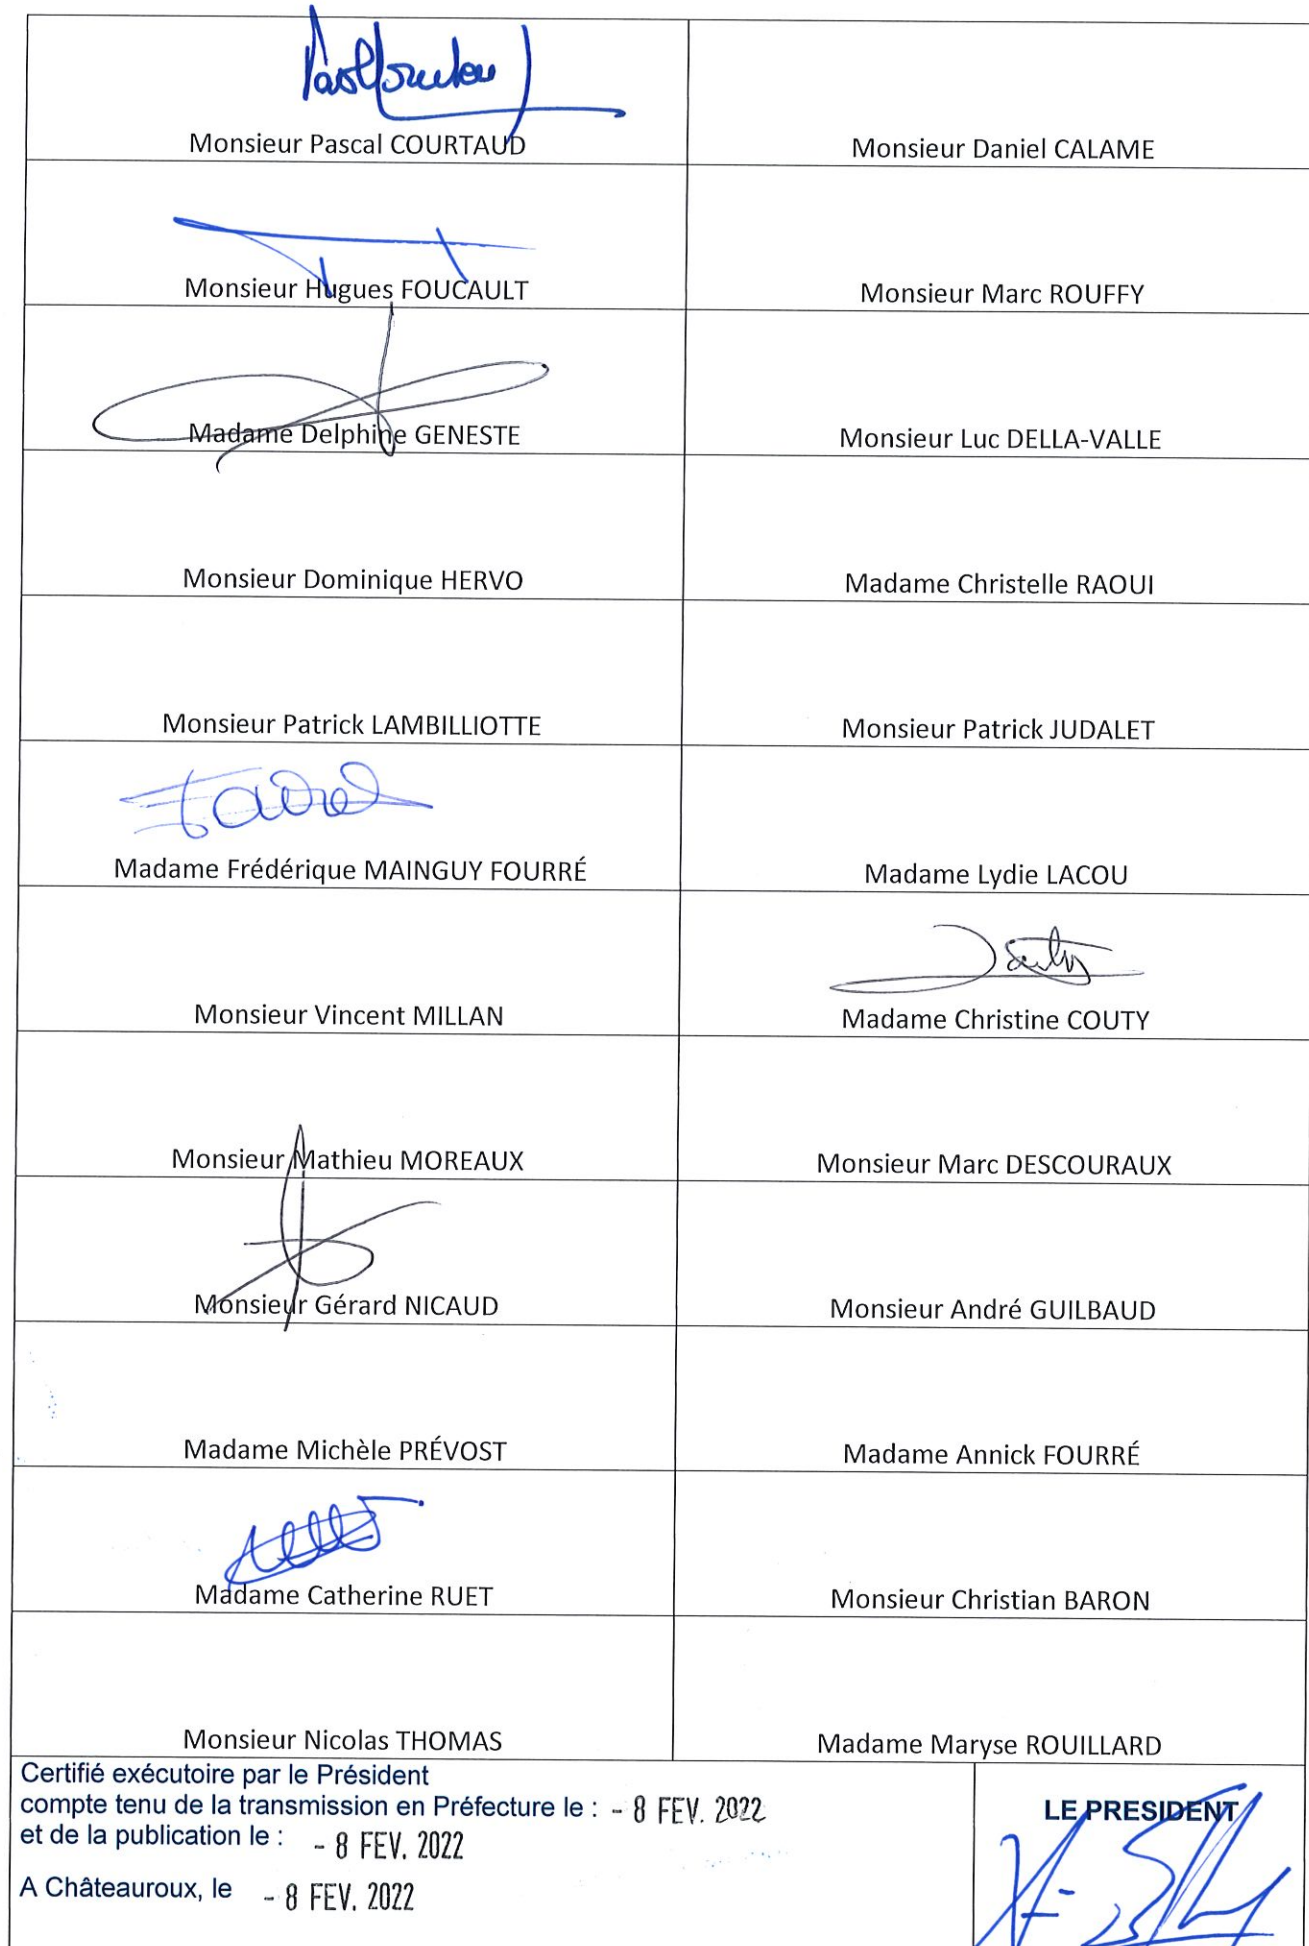 Monsieur Pascal COURTAUD
Monsieur Daniel CALAME
Monsieur Hugues FOUCAULT
Monsieur Marc ROUFFY
Madame Delphine GENESTE
Monsieur Luc DELLA-VALLE
Monsieur Dominique HERVO
Madame Christelle RAOUI
Monsieur Patrick LAMBILLIOTTE
Monsieur Patrick JUDALET
Madame Frédérique MAINGUY FOURRÉ
Madame Lydie LACOU
Monsieur Vincent MILLAN
Madame Christine COUTY
Monsieur Mathieu MOREAUX
Monsieur Marc DESCOURAUX
Monsieur Gérard NICAUD
Monsieur André GUILBAUD
Madame Michèle PRÉVOST
Madame Annick FOURRÉ
Madame Catherine RUET
Monsieur Christian BARON
Monsieur Nicolas THOMAS
Madame Maryse ROUILLARD
Certifié exécutoire par le Président
compte tenu de la transmission en Préfecture le : - 8 FEV. 2022
et de la publication le : - 8 FEV. 2022
A Châteauroux, le - 8 FEV. 2022
LE PRESIDENT